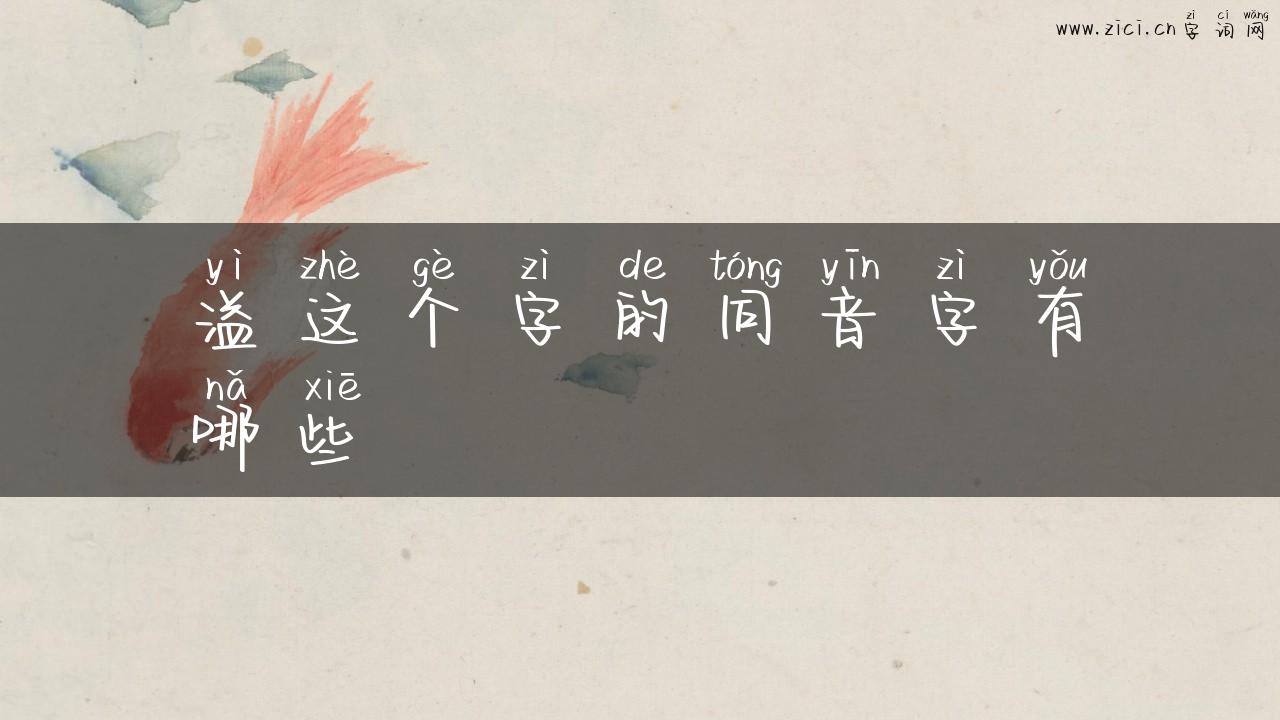 zì cí wǎng
www.zici.cn字词网
yì zhè gè zì de tóng yīn zì yǒu
溢这个字的同音字有
nǎ xiē
哪些